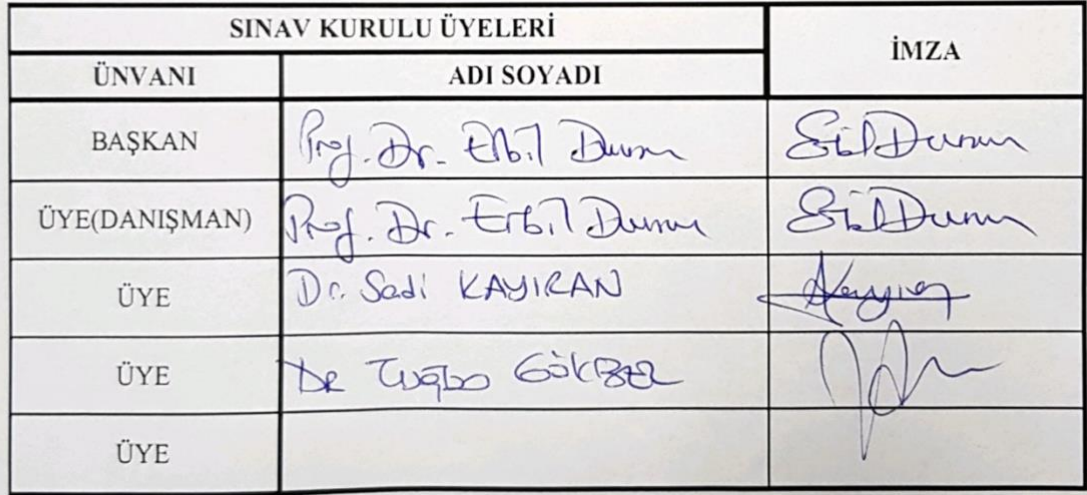 SINAV KURULU ÜYELERİ
İMZA
ÜNVANI ADI SOYADI
BAŞKAN Prof. Dr. Erbil Durusu Erbil Durusu
ÜYE(DANIŞMAN) Prof. Dr. Erbil Durusu Erbil Durusu
ÜYE Dr. Sadi KAYIRAN
ÜYE Dr Tuğba GÖKBEL
ÜYE